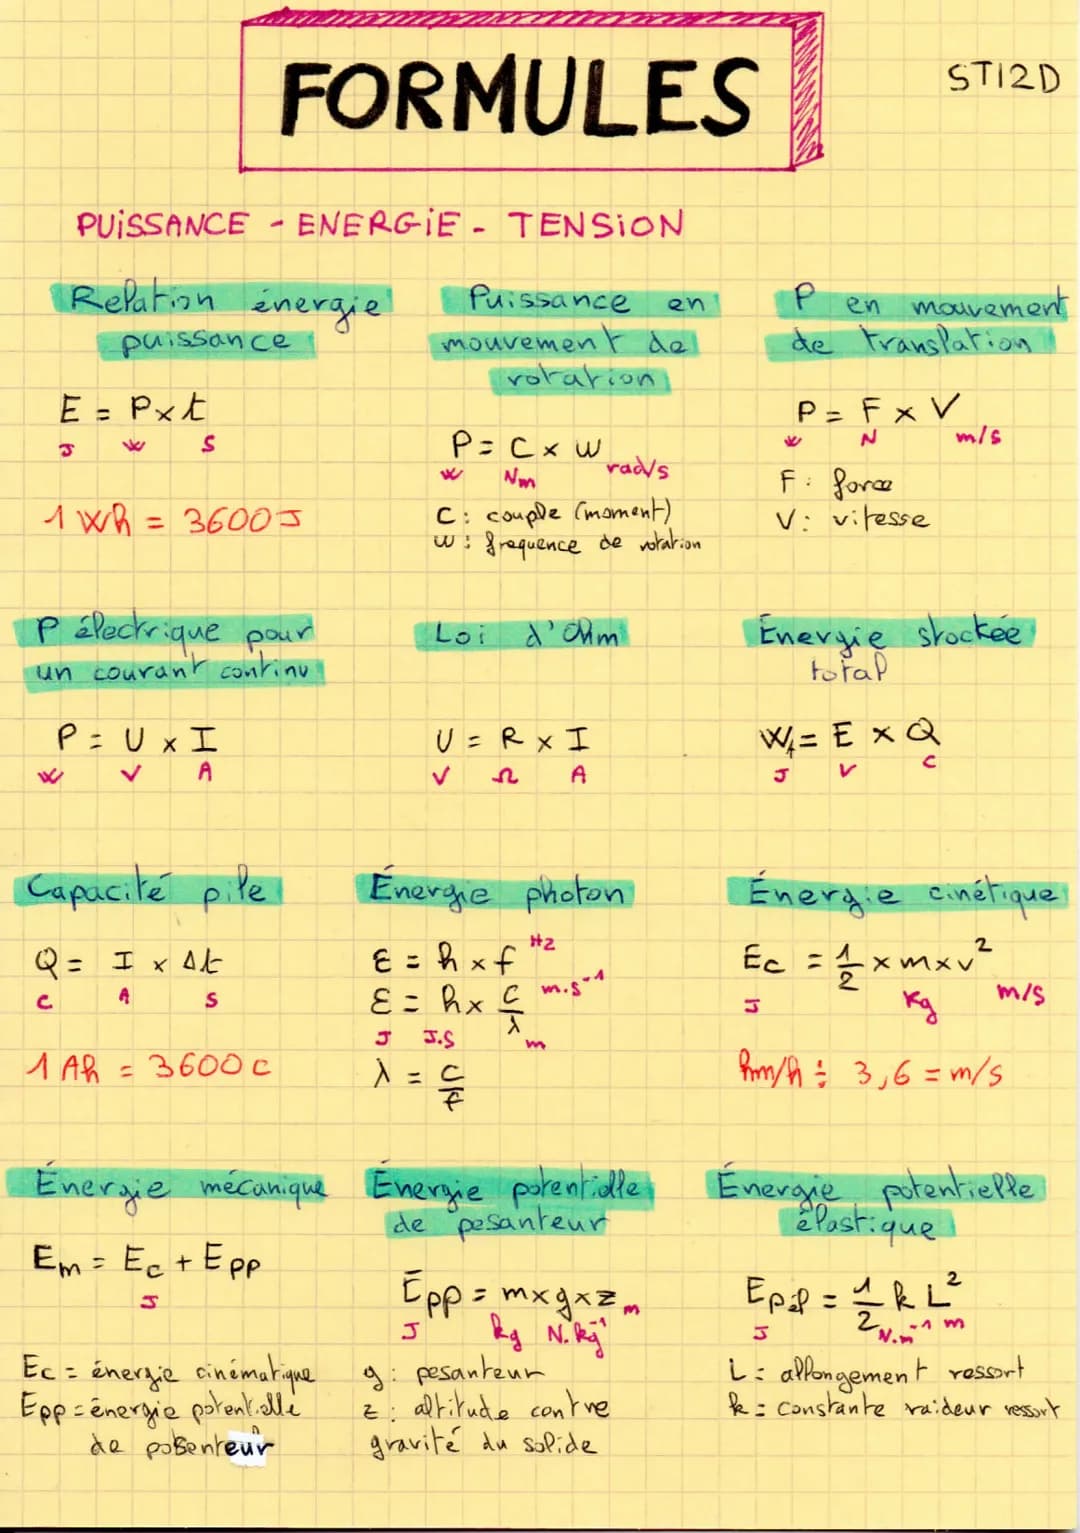 FORMULES
STI2D
PUISSANCE - ENERGIE - TENSION
Relation énergie
puissance
E = P x t
J W S
1 Wh = 3600 J
Puissance en
mouvement de
rotation
P = C x ω
W Nm rad/s
C : couple (moment)
ω : frequence de rotation
P en mouvement
de translation
P = F x V
W N m/s
F : force
V : vitesse
P électrique pour
un courant continu
P = U x I
W V A
Loi d'Ohm
U = R x I
V Ω A
Énergie stockée
total
W₁ = E x Q
J V C
Capacité pile
Q = I x Δt
C A S
1 Ah = 3600 C
Énergie photon
ε = h x f Hz
ε = h x c/λ m.s⁻¹
J J.S m
λ = c/f
Énergie cinétique
Ec = 1/2 x m x v²
J Kg m/s
km/h ÷ 3,6 = m/s
Énergie mécanique
Em = Ec + Epp
J
Ec = énergie cinématique
Epp = énergie potentielle
de posenteur
Énergie potentielle
de pesanteur
Epp = m x g x z m
J kg N.kg⁻¹
g : pesanteur
z : altitude contre
gravité du solide
Énergie potentielle
élastique
Epél = 1/2 k L²
J N.m⁻¹ m
L = allongement ressort
k = constante raideur ressort